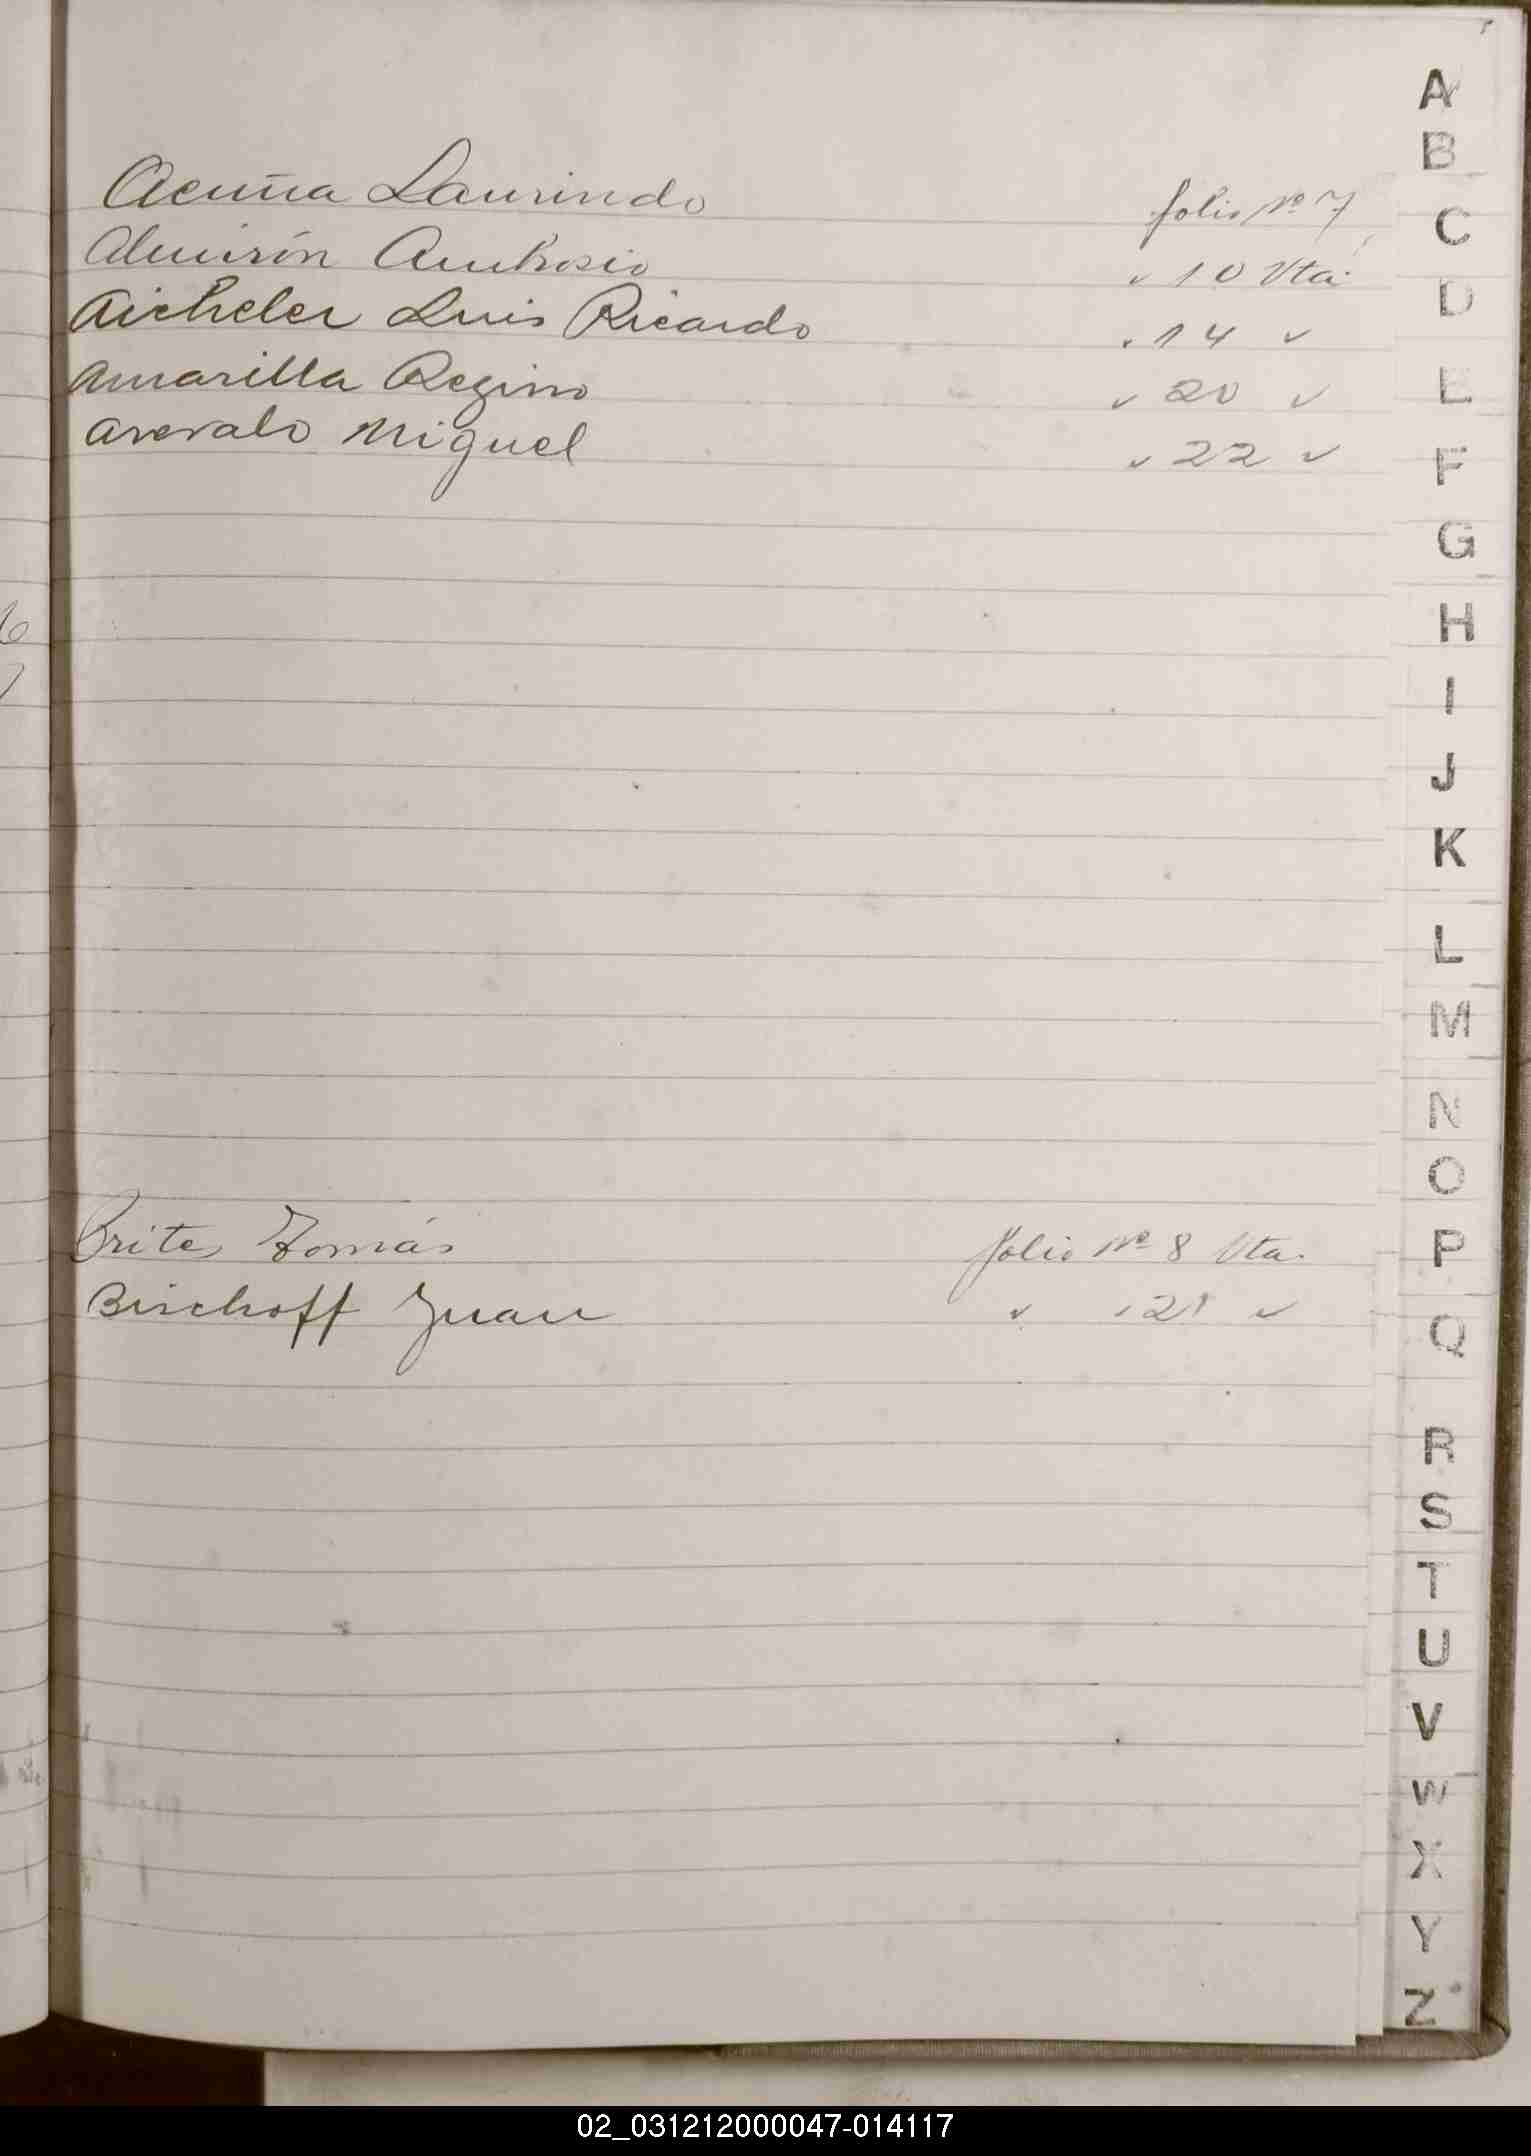 Acuña Laurindo folio Nº 7
Almirón Ambrosio " 10 Vta.
Aicheler Luis Ricardo " 14 "
Amarilla Regino " 20 "
Arevalo Miguel " 22 "
Brites Tomás folio Nº 8 Vta.
Bischoff Juan " " 21 "
A
B
C
D
E
F
G
H
I
J
K
L
M
N
O
P
Q
R
S
T
U
V
W
X
Y
Z
02_031212000047-014117